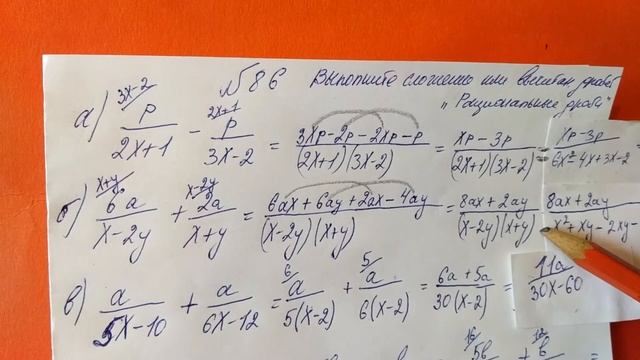 №86 Выполните сложение или вычитан. дробей
"Рациональные дроби"
а) p/(2x+1) (3x-2 - p/(3x-2) (2x+1 = (3xp-2p-2xp-p)/((2x+1)(3x-2)) = (xp-3p)/((2x+1)(3x-2)) = (xp-3p)/(6x²-4x+3x-2) =
б) 6a/(x-2y) (x+y + 2a/(x+y) (x-2y = (6ax+6ay+2ax-4ay)/((x-2y)(x+y)) = (8ax+2ay)/((x-2y)(x+y)) (8ax+2ay)/(x²+xy-2xy-
в) a/(5x-10) + a/(6x-12) = 6/ a/(5(x-2)) + 5/ a/(6(x-2)) = (6a+5a)/(30(x-2)) = 11a/(30x-60)